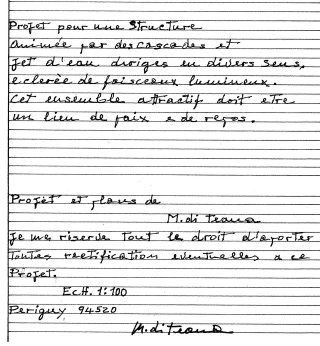 Projet pour une Structure
Animée par des cascades et
Jet d'eau diriges en divers sens,
eclerée de faisceaux lumineux.
Cet ensemble attractif doit etre
un lieu de paix e de repos.
Projet et plans de
M. di Teana
Je me riserve tout le droit d'aporter
toutes rectification eventuelles a ce
Projet.
EcH. 1:100
Perigny 94520
M. di Teana